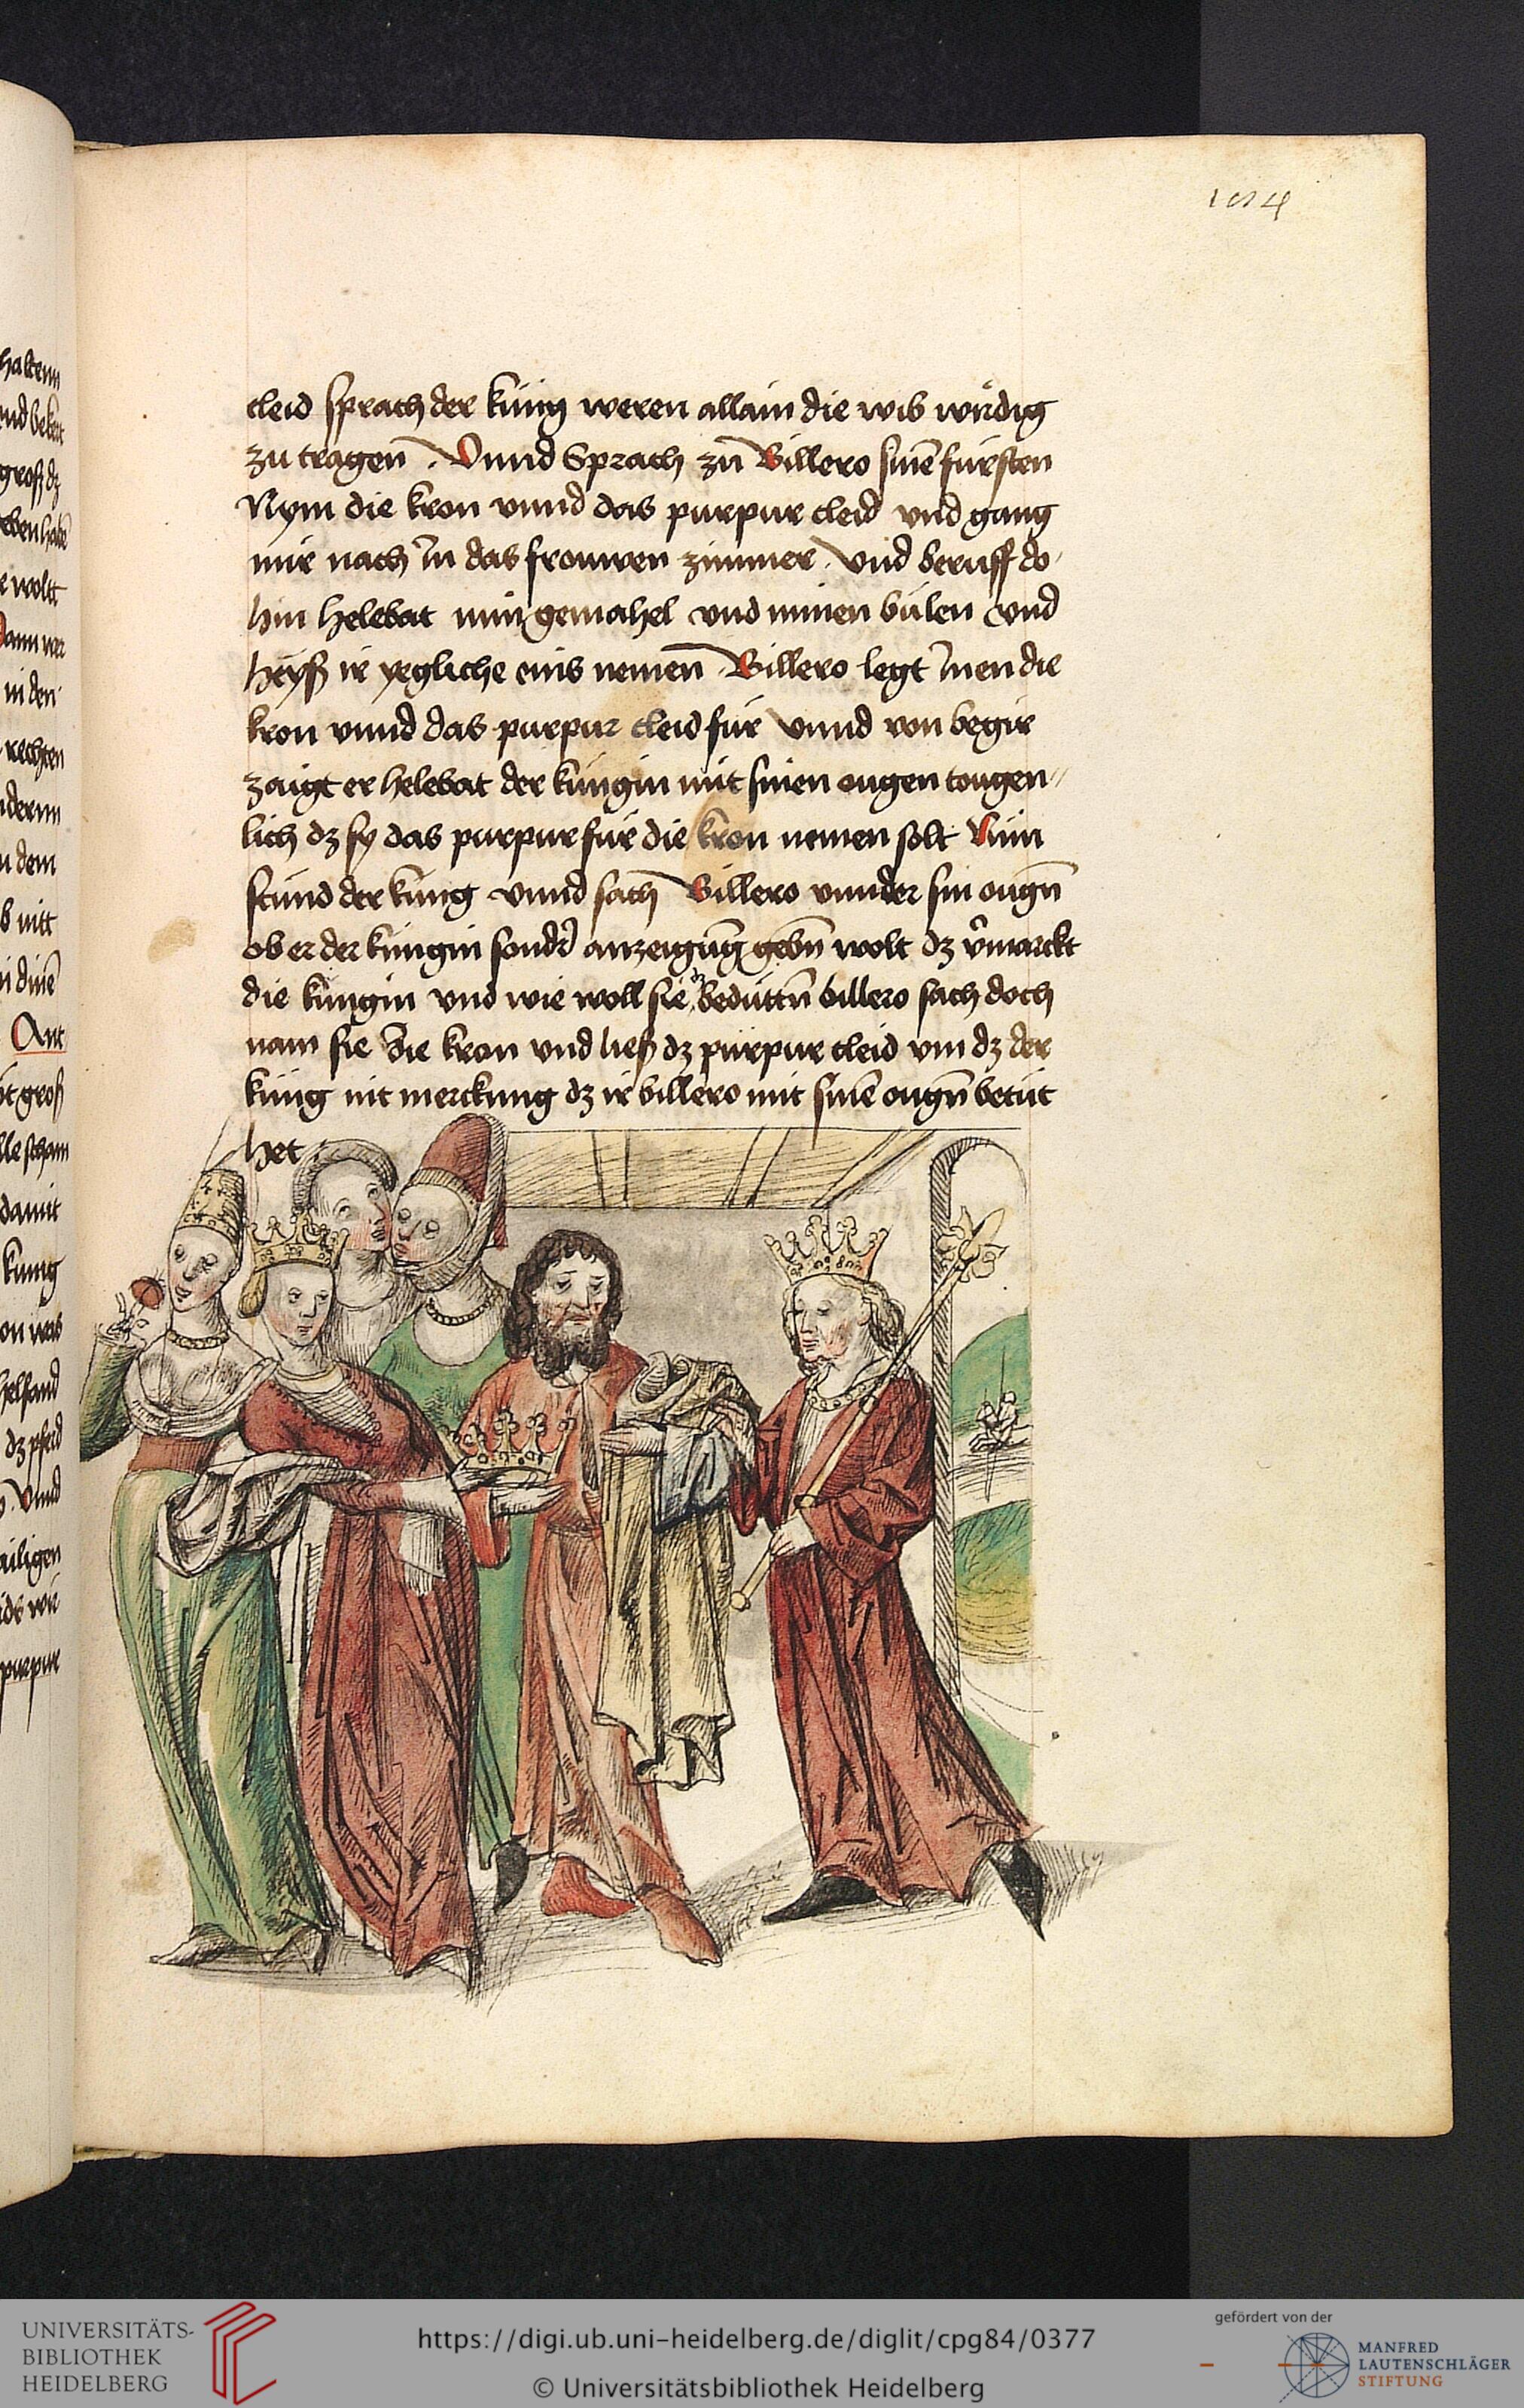 184
cleid sprach der küng weren allain die wib wirdig
zu tragen̄ . Vnnd Sprach zu̅ Billero sine̅ fürsten
Nym die kron vnnd das purpur cleid vnd gang
mir nach in das frouwen zimmer . vnd beruff do
hin helebat min gemahel vnd minen bülen vnd
heyß ir yegliche eins nemen̄ . Billero legt inen die
kron vnnd das purpur cleid für vnnd von begir
zaigt er helebat der küngin mit sinen ougen tougen=
lich dz sy das purpur für die kron nemen solt Nün
stünd der küng vnnd sach Billero vnnder sin ougn̄
ob er der küngin sondr̄ anzeigūg gebn̄ wolt dz v̄marckt
die küngin vnd wie woll sie dz bedüttn̄ billero sach doch
nam sie die kron vnd ließ dz pürpur cleid vm dz der
küng nit merckung dz ir billero mit sine̅ ougn̄ betüt
het .
haltenn
groß dz
e woltt
in den
rechten
dem
nitt
dine̅
Ant
groß
damit
kunig
helfand
dz pferd
vnnd
purpur
UNIVERSITÄTS-
BIBLIOTHEK
HEIDELBERG
https://digi.ub.uni-heidelberg.de/diglit/cpg84/0377
© Universitätsbibliothek Heidelberg
gefördert von der
MANFRED
LAUTENSCHLÄGER
STIFTUNG